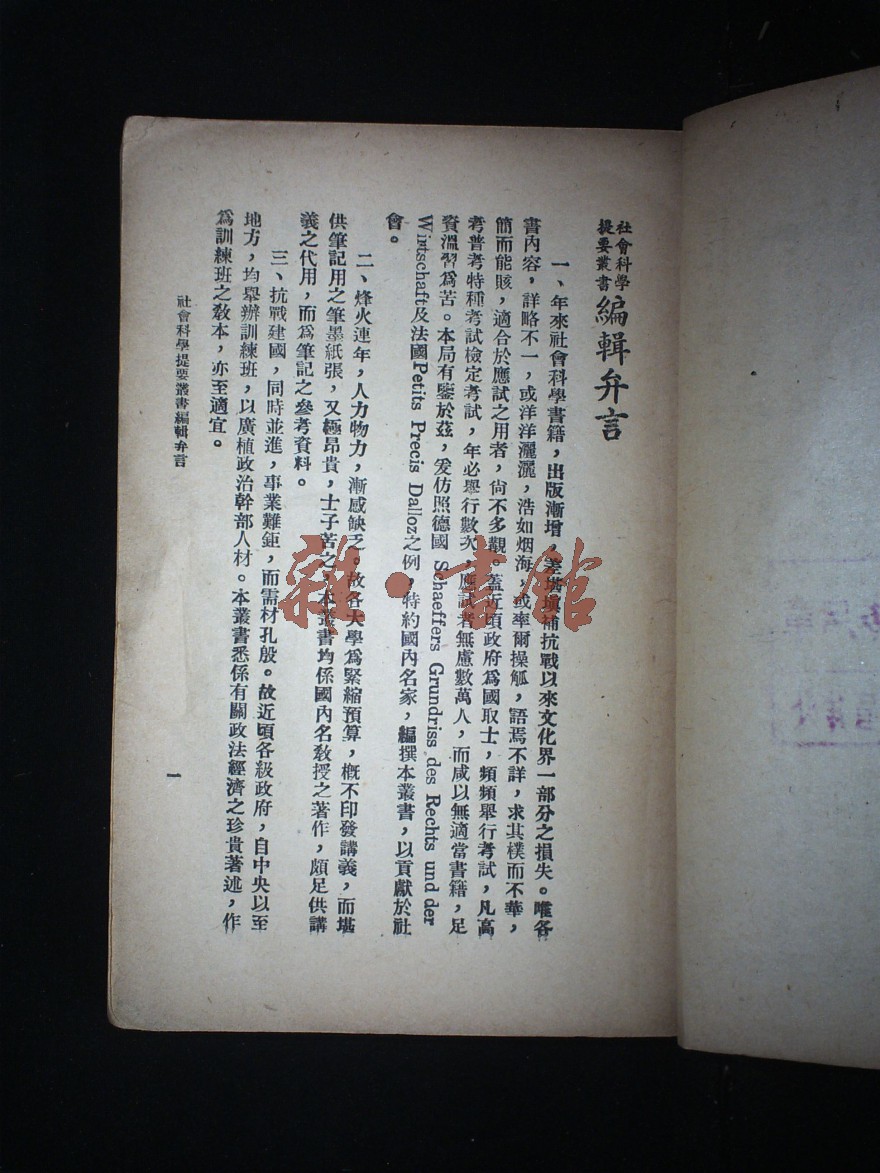 社會科學
提要叢書
編輯弁言
一、年來社會科學書籍，出版漸增，差堪塡補抗戰以來文化界一部分之損失。唯各
書內容，詳略不一，或洋洋灑灑，浩如烟海，或率爾操觚，語焉不詳，求其樸而不華，
簡而能賅，適合於應試之用者，尙不多觀。蓋近頃政府爲國取士，頻頻舉行考試，凡高
考普考特種考試檢定考試，年必舉行數次，應試者無慮數萬人，而咸以無適當書籍，足
資溫習爲苦。本局有鑒於茲，爰仿照德國 Schaeffers Grundriss des Rechts und der
Wirtschaft及法國Petits Precis Dalloz之例，特約國內名家，編撰本叢書，以貢獻於社
會。
二、烽火連年，人力物力，漸感缺乏。故各大學爲緊縮預算，槪不印發講義，而堪
供筆記用之筆墨紙張，又極昂貴，士子苦之，本叢書均係國內名敎授之著作，頗足供講
義之代用，而爲筆記之參考資料。
三、抗戰建國，同時並進，事業難鉅，而需材孔殷。故近頃各級政府，自中央以至
地方，均舉辦訓練班，以廣植政治幹部人材。本叢書悉係有關政法經濟之珍貴著述，作
爲訓練班之敎本，亦至適宜。
社會科學提要叢書編輯弁言
一
雜·書館